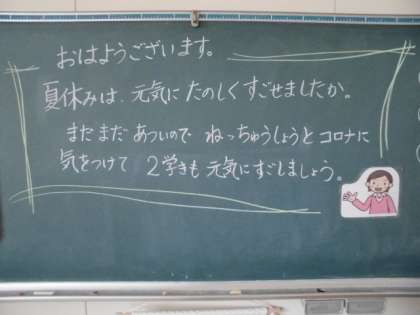 おはようございます。
夏休みは、元気に たのしくすごせましたか。
まだまだ あついので ねっちゅうしょうとコロナに
気をつけて 2学きも 元気にすごしましょう。